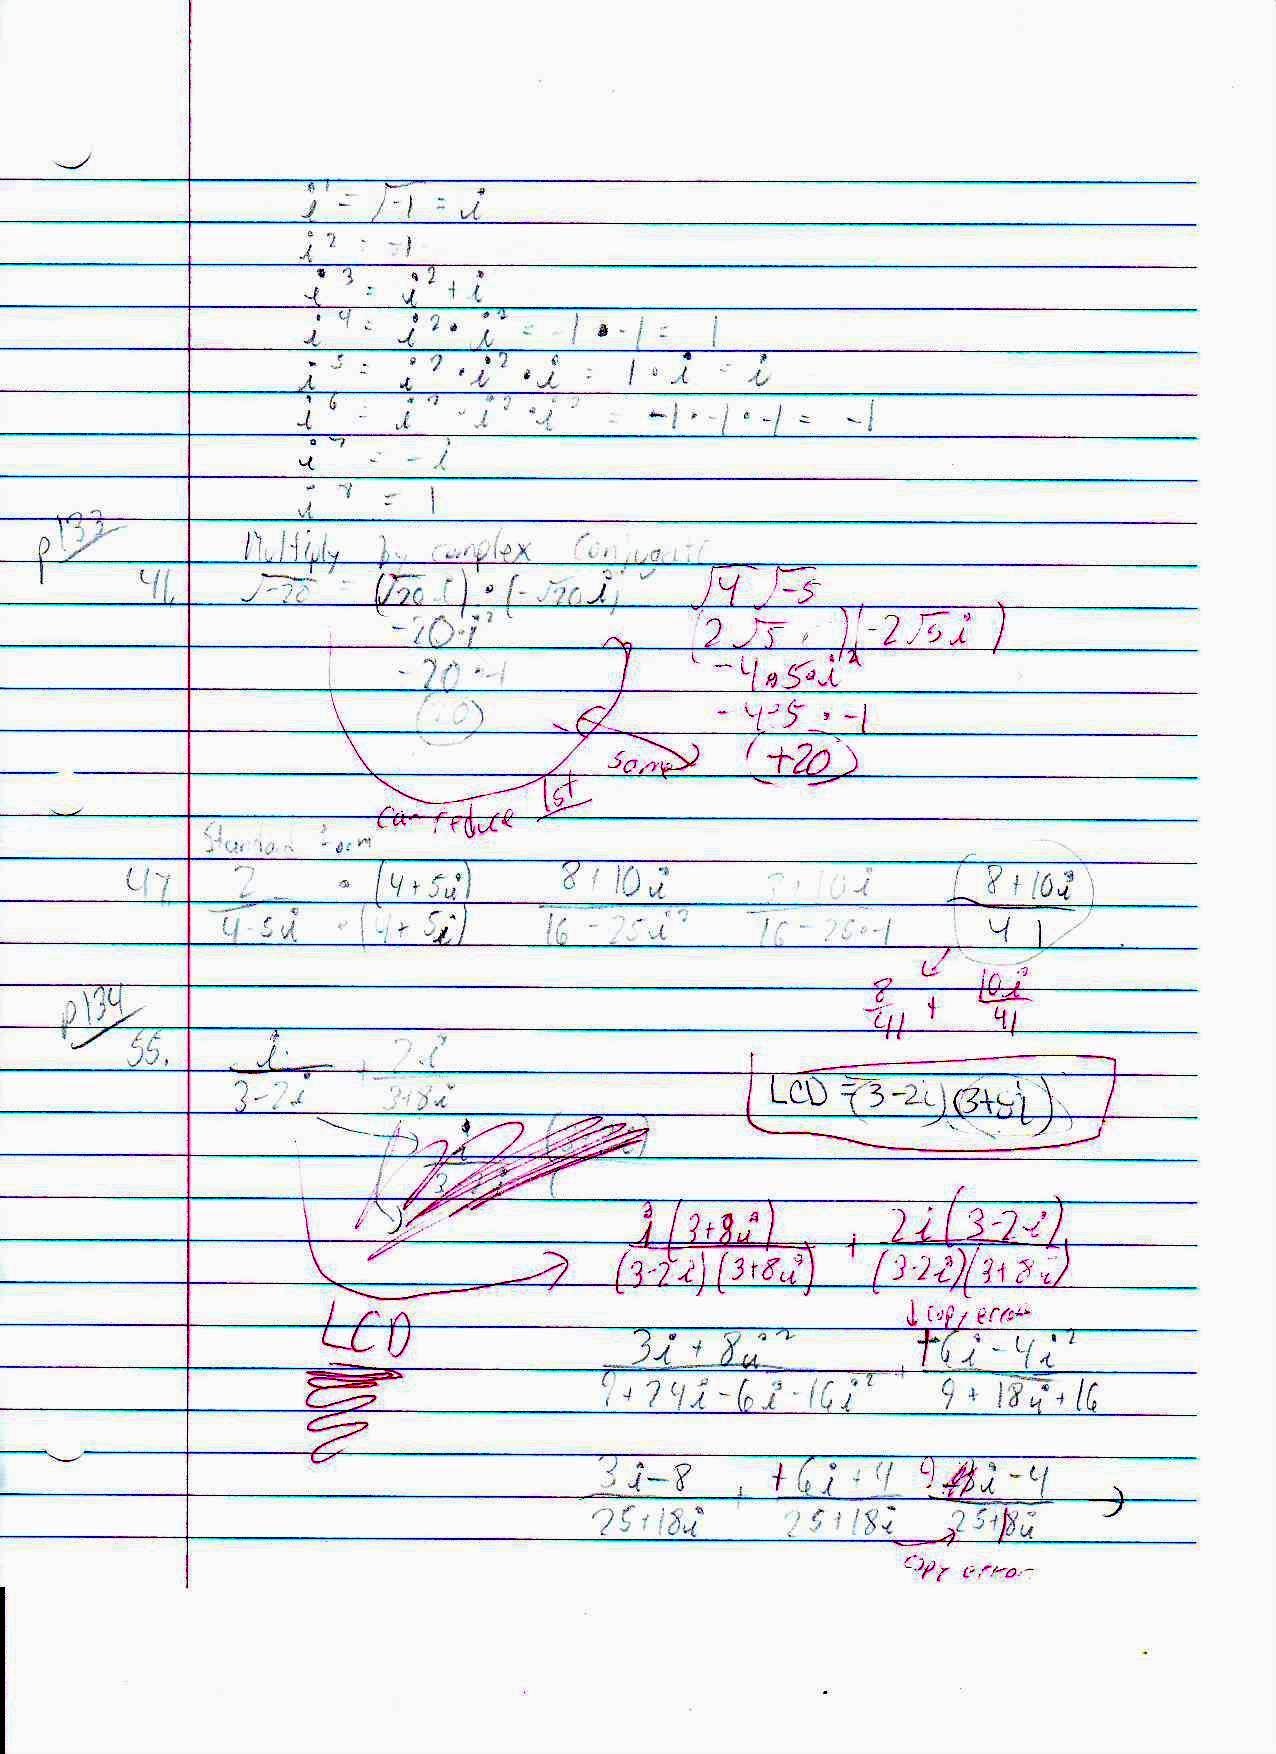 i¹ = √-1 = i
i² = -1
i³ = i² + i
i⁴ = i² • i² = -1 • -1 = 1
i⁵ = i² • i² • i = 1 • i = i
i⁶ = i² • i² • i² = -1 • -1 • -1 = -1
i⁷ = -i
i⁸ = 1
p133
Multiply by complex conjugate
41. √-20 = (√20 i) • (-√20 i) √4 √-5
-20 • i² (2√5 )(-2√5 i)
-20 • -1 -4 • 5 • i²
(20) -4 • 5 • -1
same (+20)
can reduce 1st
Standard form
47. 2/(4-5i) • (4+5i)/(4+5i) (8+10i)/(16-25i²) (8+10i)/(16-25•-1) (8+10i)/41
8/41 + 10i/41
p134
55. i/(3-2i) + 2i/(3+8i) LCD = (3-2i)(3+8i)
i(3+8i)/((3-2i)(3+8i)) + 2i(3-2i)/((3-2i)(3+8i))
↓ copy error
LCD (3i+8i²)/(9+24i-6i-16i²) + (+6i-4i²)/(9+18i+16)
(3i-8)/(25+18i) + (+6i+4)/(25+18i) (9i-4)/(25+18i) →
copy error